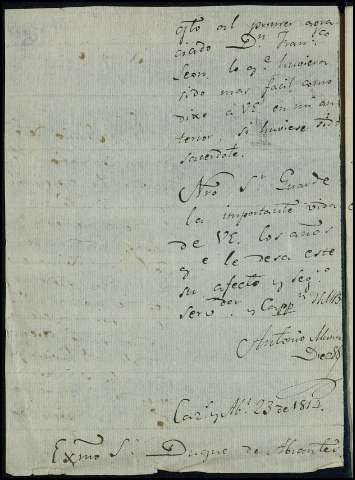 qto al primer agra
ciado Dn. Franco
Leon, lo q.e huviera
sido mas facil como
dixe á VE. en mi an
terior, si huviese sido
sacerdote.
Nro Sr. Guarde
la importante vida
de VE. los años
q.e le desea este
su afecto y seg.o
serv.dor y Capp.n
Antonio
Car.s y Ab.l 23 de 1814.
Exmo Sr. Duque de Abrantes.